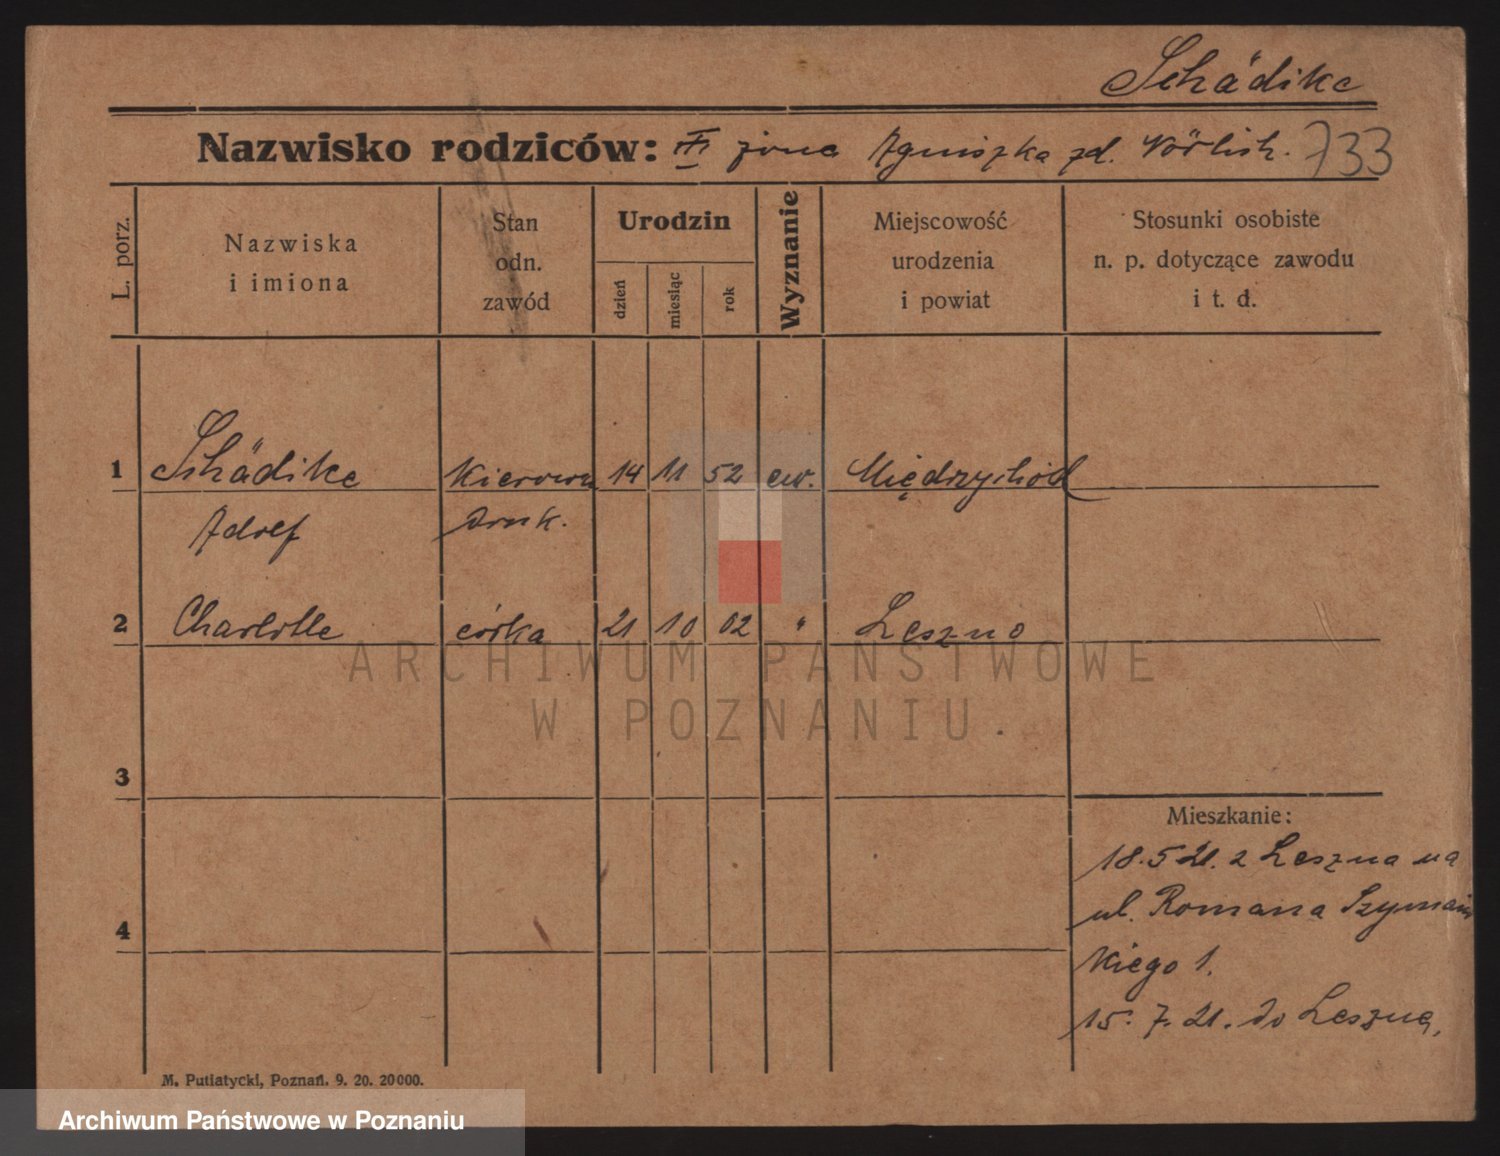 Schädike
Nazwisko rodziców: III żona Agniszka zd. Nörlich. 733
L. porz.
Nazwiska
i imiona
Stan
odn.
zawód
Urodzin
dzień
miesiąc
rok
Wyznanie
Miejscowość
urodzenia
i powiat
Stosunki osobiste
n. p. dotyczące zawodu
i t. d.
1 Schädike Kierown 14 11 52 ew. Międzychód
Adolf druk.
2 Charlotte córka 21 10 02 " Leszno
ARCHIWUM PAŃSTWOWE
W POZNANIU.
3
Mieszkanie:
18.5 21. z Leszna na
ul. Romana Szymańs
4
kiego 1.
15. 7. 21. do Leszna,
M. Putiatycki, Poznań. 9. 20. 20000.
Archiwum Państwowe w Poznaniu